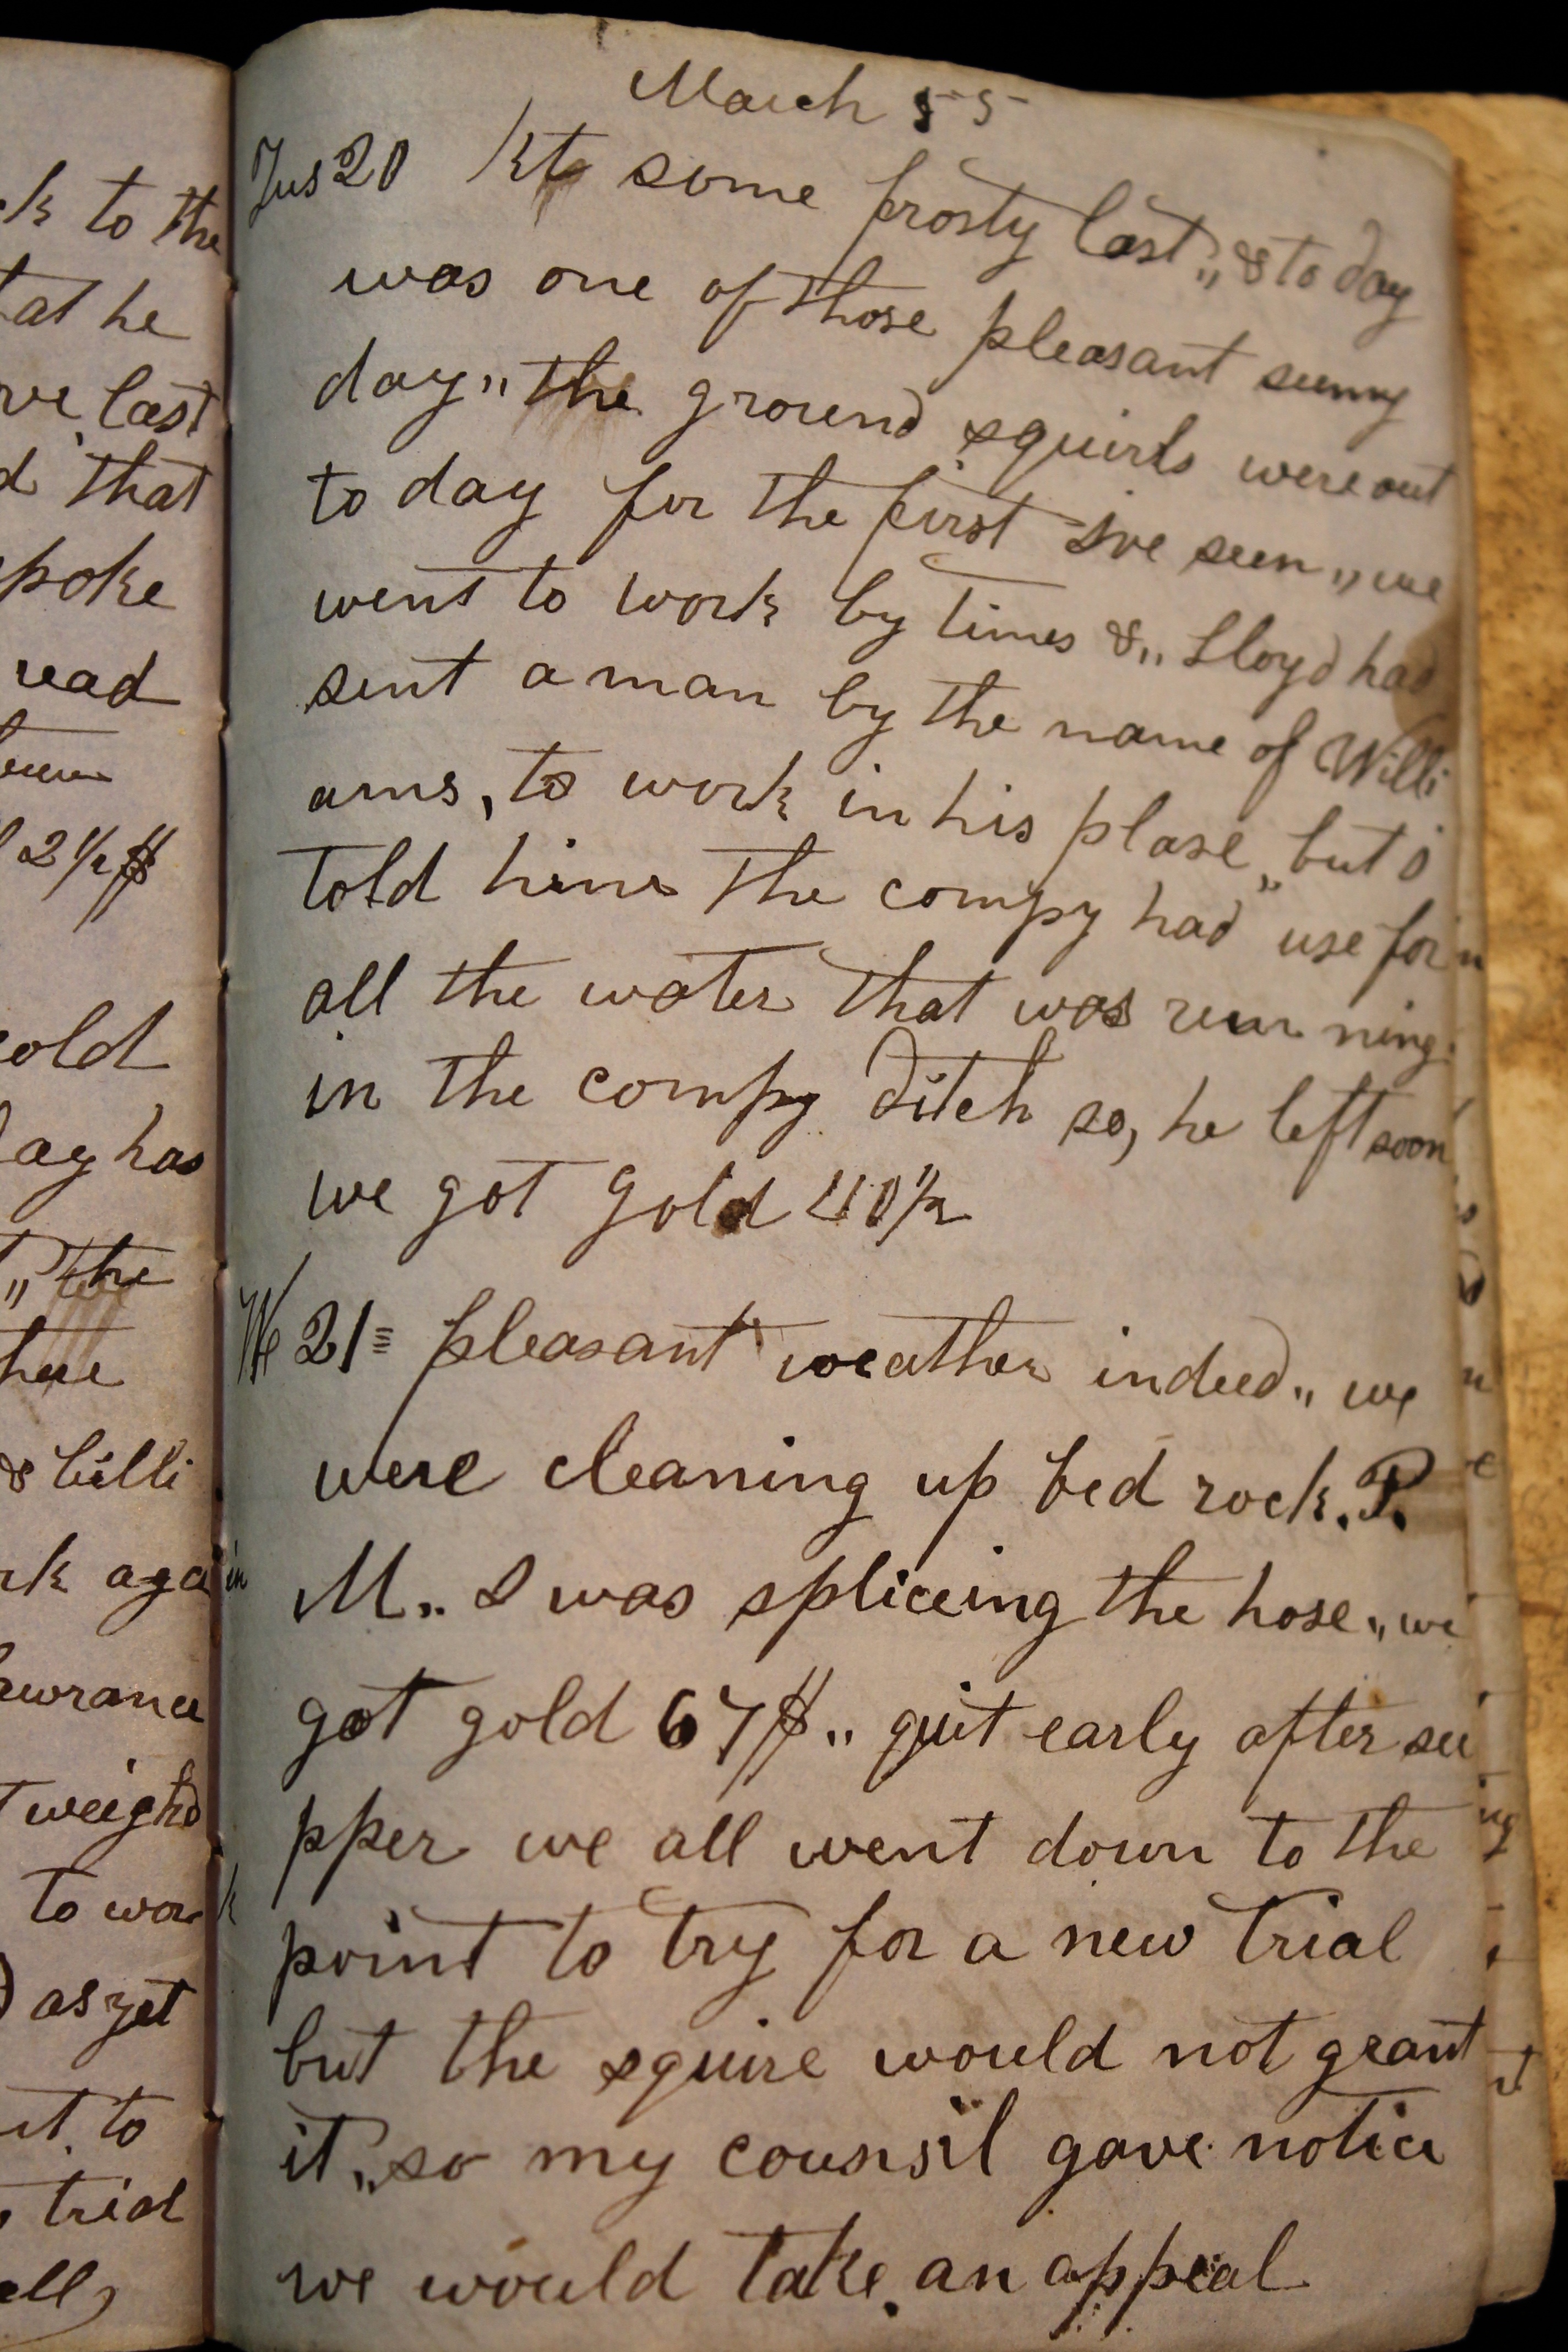 k to the
at he
ve last
d that
spoke
read
2 1/2 $
old
ay has
" the
here
& billi
rk again
awrance
t weighd
to work
) as yet
it. to
trial
all,
March 55
Tus 20 its some frosty last,, & to day
was one of those pleasant sunny
day,, the ground squirls were out
to day for the first ive seen,, we
went to work by times &,, Lloyd had
sent a man by the name of Willi
ams, to work in his plase,, but i
told him the compy had use for
all the water that was running
in the compy ditch so, he left soon
we got gold 40 1/2
We 21= pleasant weather indeed,, we
were cleaning up bed rock. P.
M.. I was spliceing the hose,, we
got gold 67$,, quit early after su
pper we all went down to the
point to try for a new trial
but the squire would not grant
it,, so my counsil gave notice
we would take an appeal